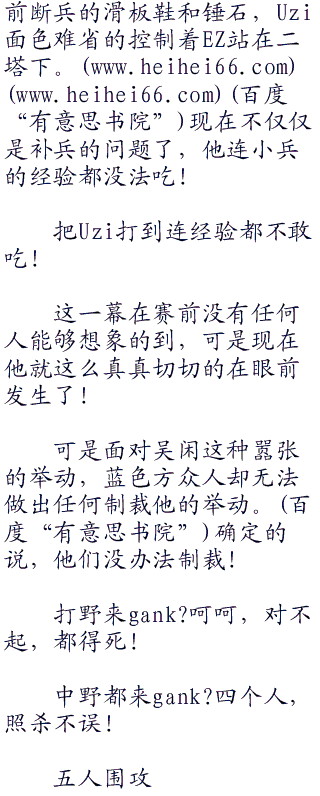 前断兵的滑板鞋和锤石，Uzi
面色难省的控制着EZ站在二
塔下。(www.heihei66.com)
(www.heihei66.com)(百度
“有意思书院”)现在不仅仅
是补兵的问题了，他连小兵
的经验都没法吃！
把Uzi打到连经验都不敢
吃！
这一幕在赛前没有任何
人能够想象的到，可是现在
他就这么真真切切的在眼前
发生了！
可是面对吴闲这种嚣张
的举动，蓝色方众人却无法
做出任何制裁他的举动。(百
度“有意思书院”)确定的
说，他们没办法制裁！
打野来gank?呵呵，对不
起，都得死！
中野都来gank?四个人，
照杀不误！
五人围攻